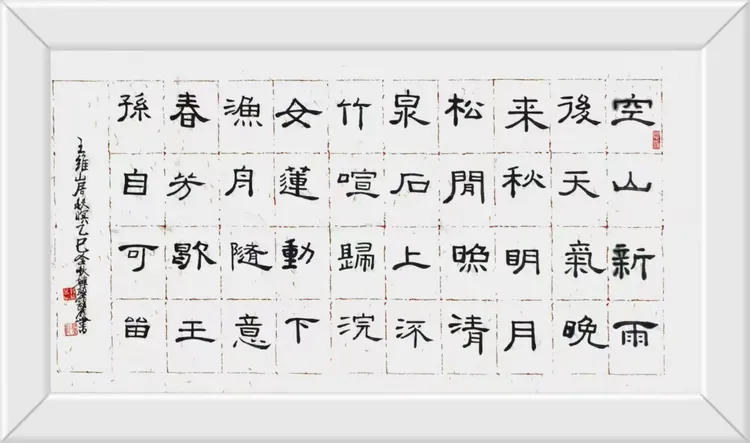 空山新雨
後天氣晚
来秋明月
松閒照清
泉石上流
竹喧歸浣
女蓮動下
漁舟隨意
春芳歇王
孫自可留
王維山居秋暝乙巳金秋書